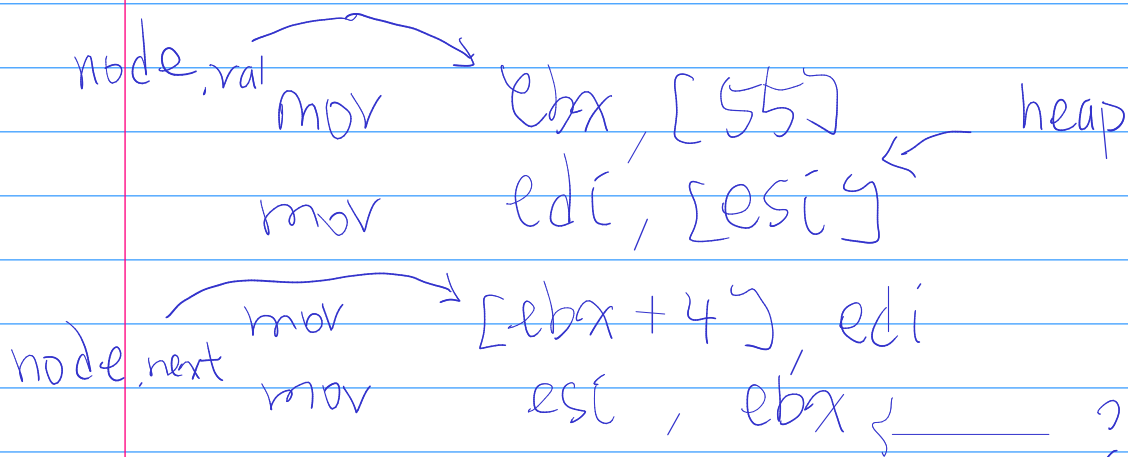 node.val
mov ebx, [55]
heap
mov edi, [esi]
mov [ebx + 4], edi
node.next
mov esi, ebx { ?